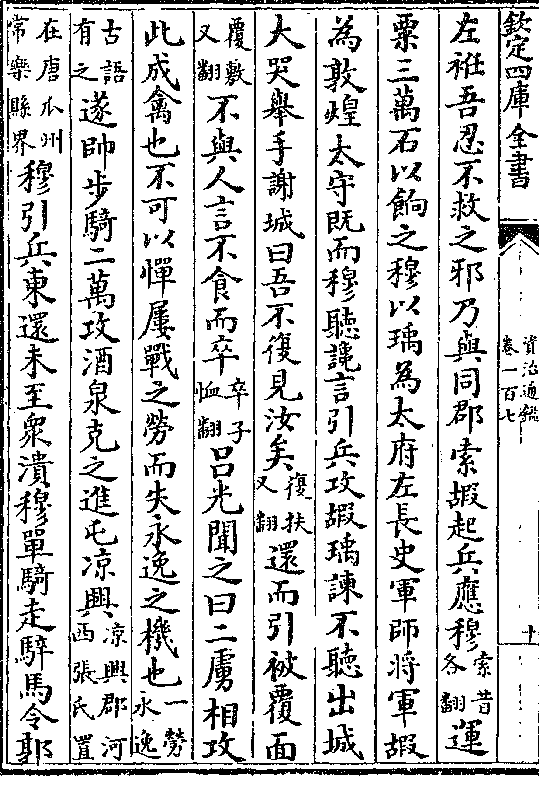 欽定四庫全書
資治通鑑
卷一百七
十
左袵吾忍不救之邪乃與同郡索嘏起兵應穆索昔各翻運
粟三萬石以餉之穆以瑀為太府左長史軍師將軍嘏
為敦煌太守既而穆聽讒言引兵攻嘏瑀諫不聽出城
大哭舉手謝城曰吾不復見汝矣復扶又翻還而引被覆面
覆敷又翻不與人言不食而卒卒子恤翻呂光聞之曰二虜相攻
此成禽也不可以憚屢戰之勞而失永逸之機也一勞永逸
古語有之遂帥步騎二萬攻酒泉克之進屯凉興凉興郡河西張氏置
在唐瓜州常樂縣界穆引兵東還未至衆潰穆單騎走騂馬令郭